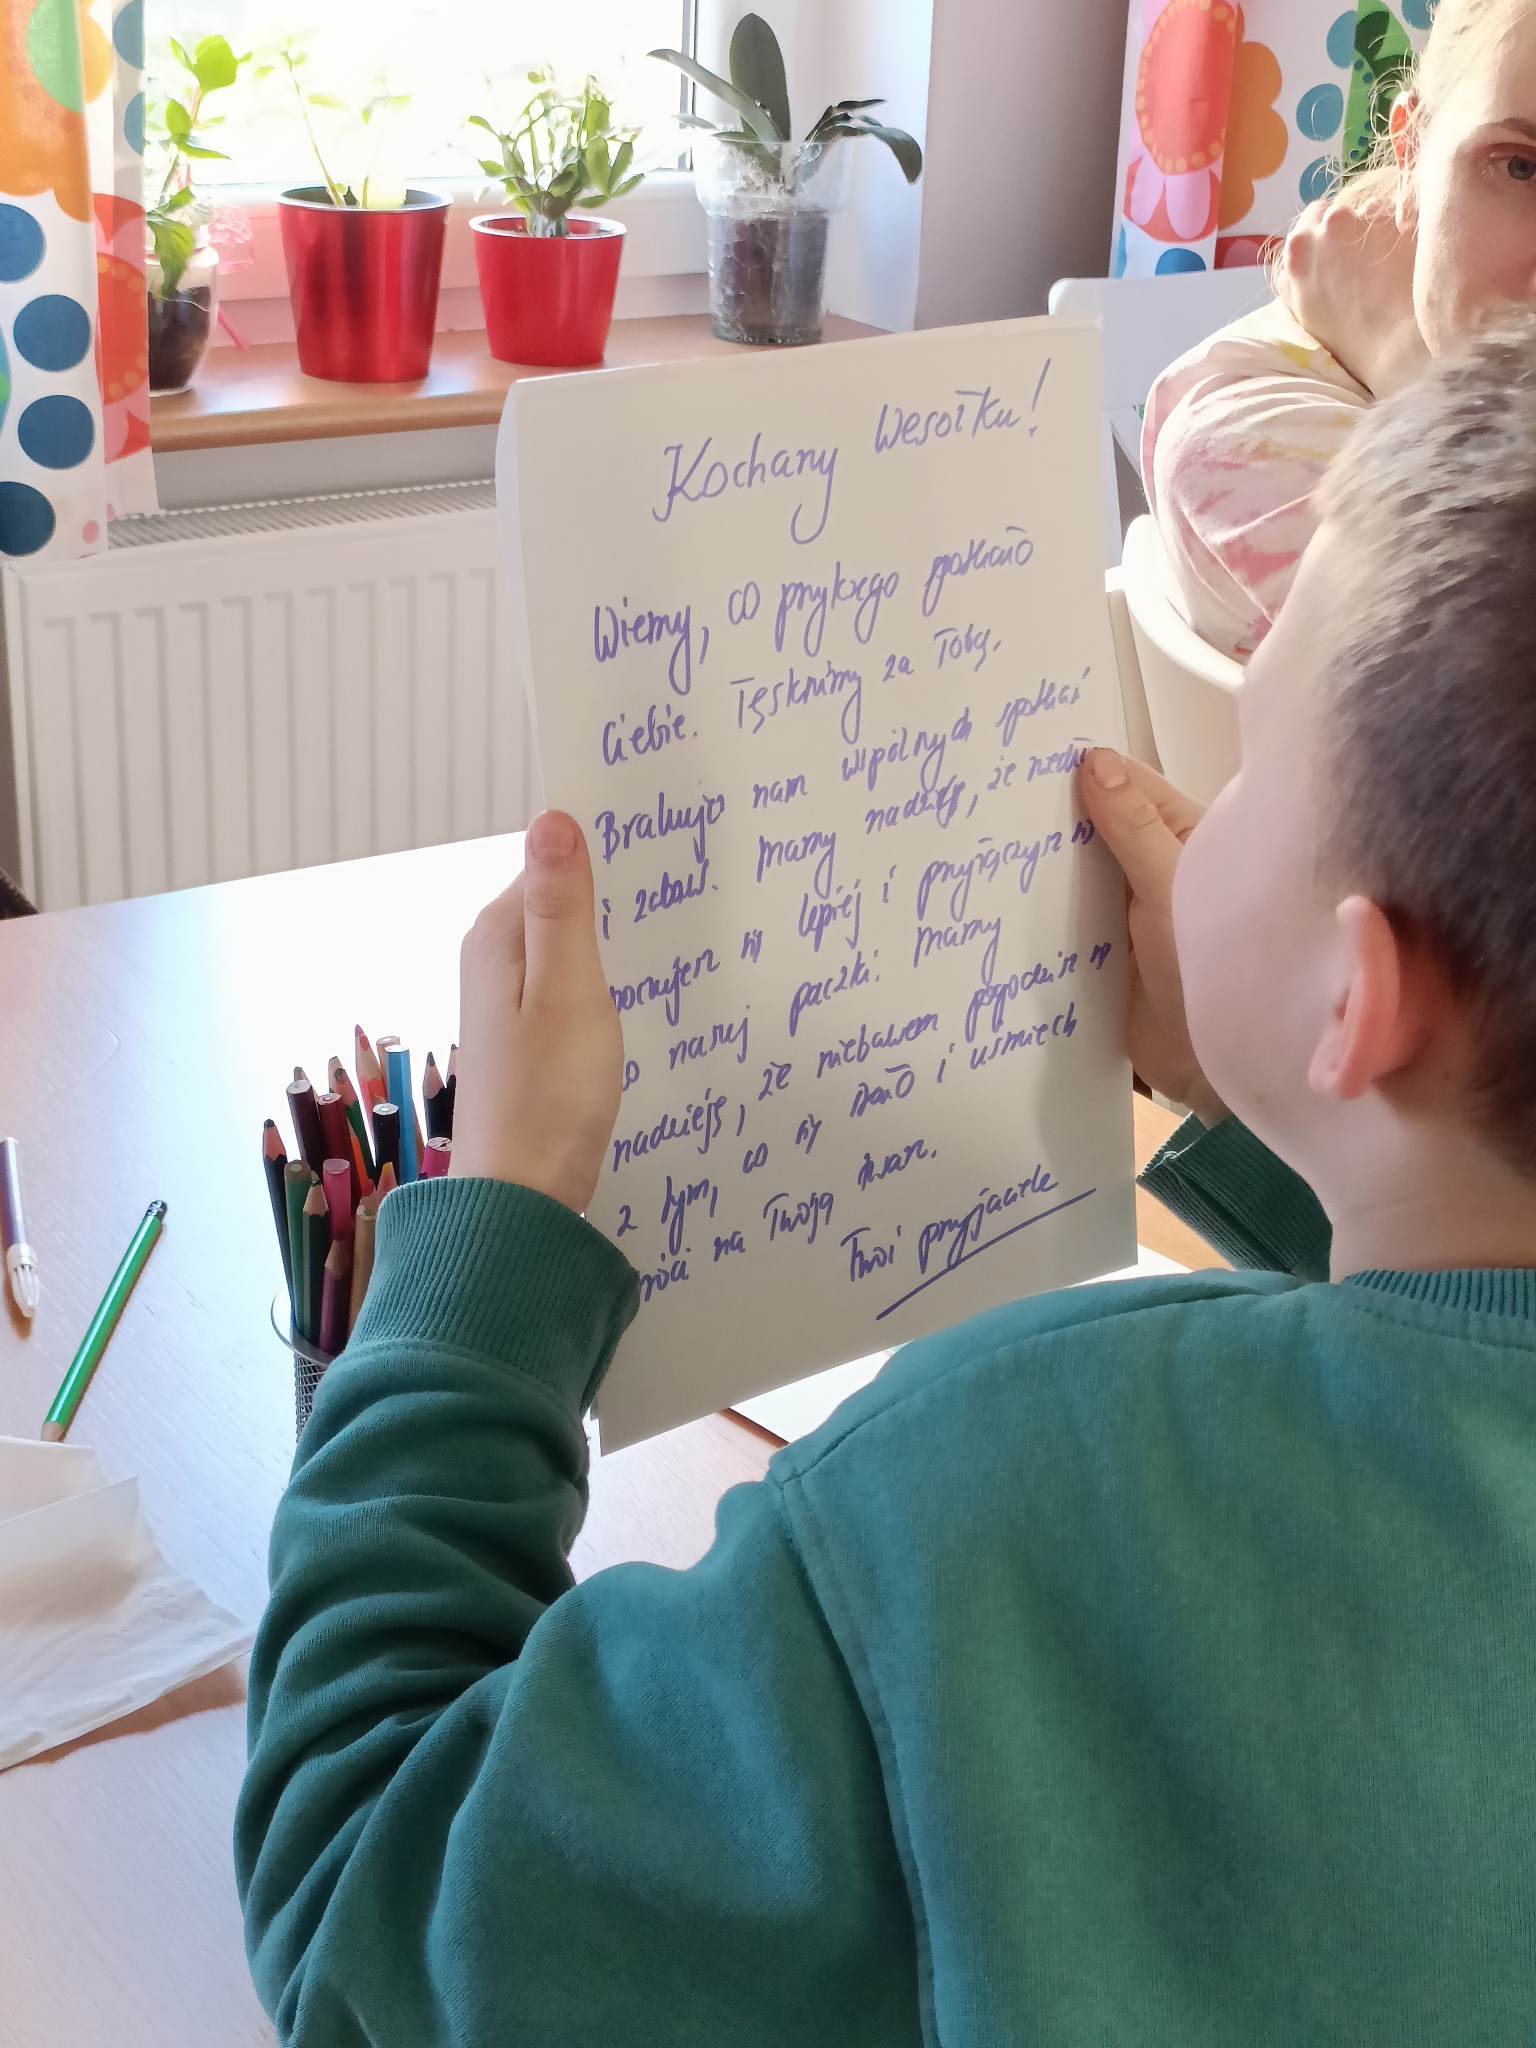 Kochany Wesołku!
Wiemy, co przykrego spotkało
Ciebie. Tęsknimy za Tobą.
Brakuje nam wspólnych spotkań
i zabaw. Mamy nadzieję, że
poczujesz się lepiej i przyłączysz się
do naszej paczki. Mamy
nadzieję, że niebawem pogodzisz się
z tym, co się stało i uśmiech
wróci na Twoją twarz.
Twoi przyjaciele